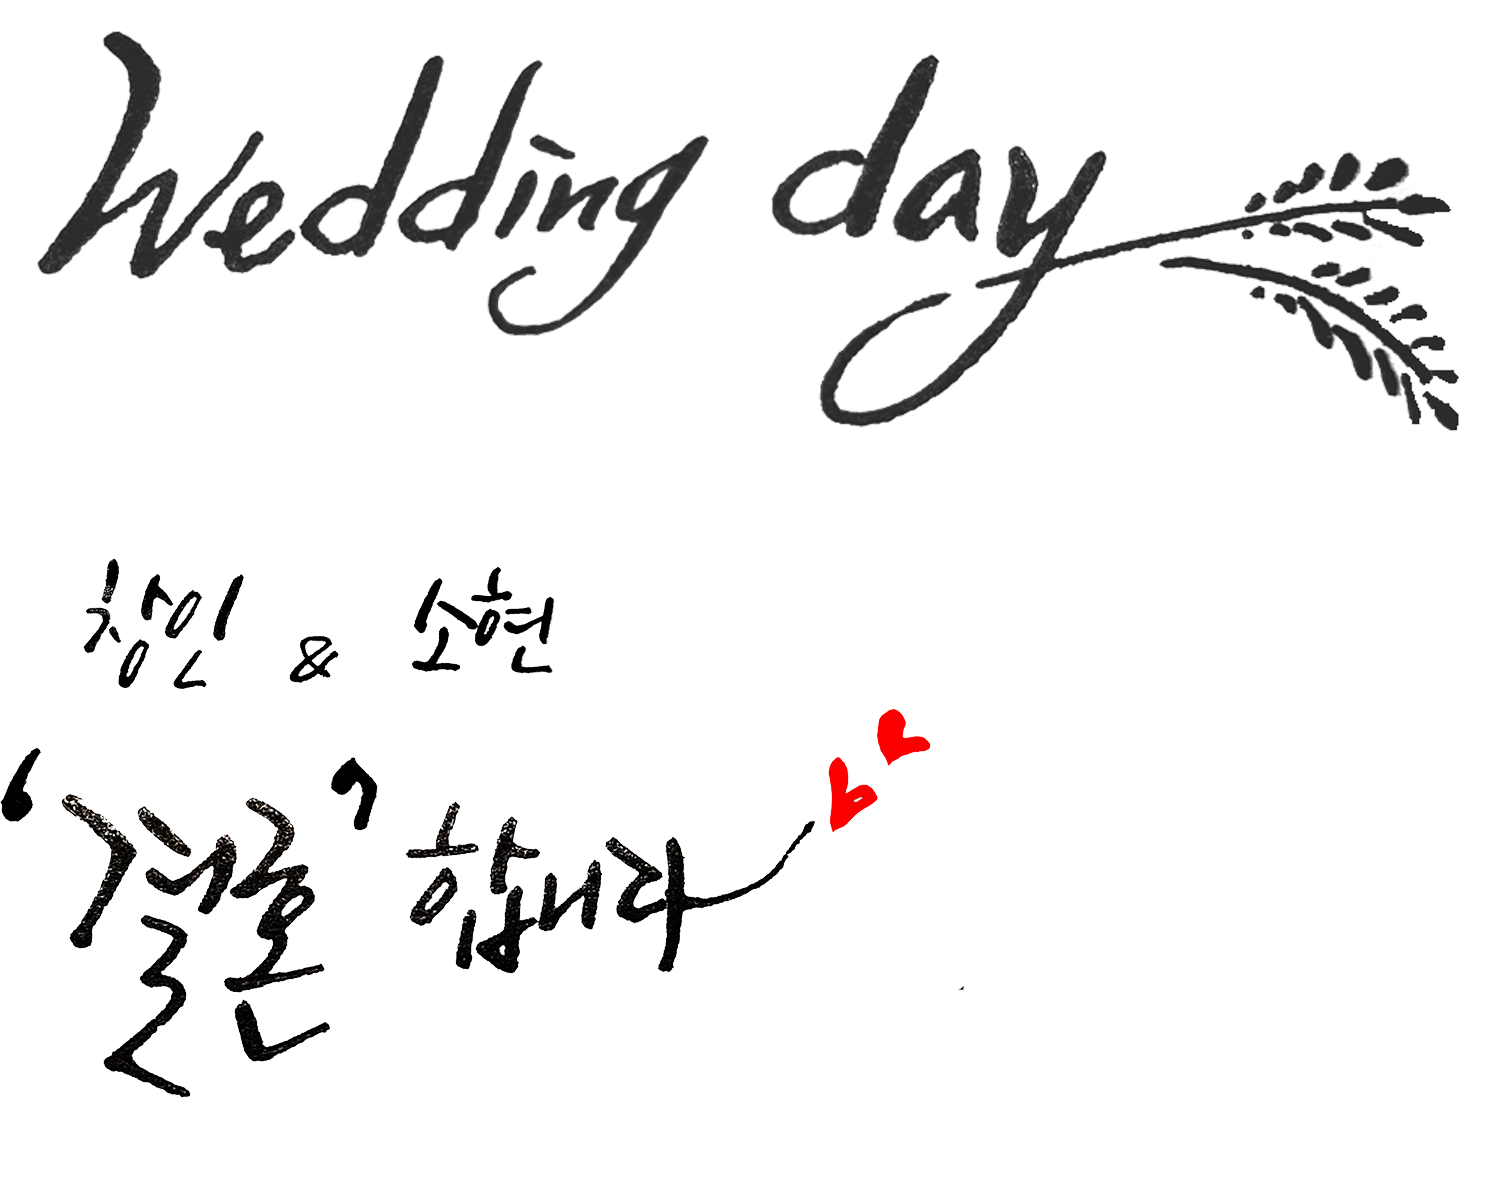 Wedding day
창인 & 소현
‘결혼’ 합니다